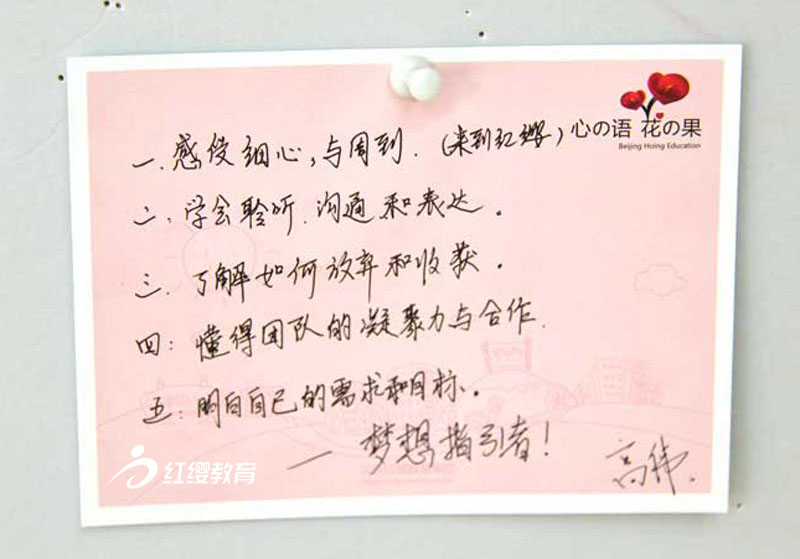 心の语 花の果
Beijing Hoing Education
一.感受细心,与周到.(来到红缨)
二.学会聆听.沟通和表达。
三.了解如何放弃和收获。
四:懂得团队的凝聚力与合作.
五:明白自己的需求和目标。
—梦想指引者!
高伟.
红缨教育